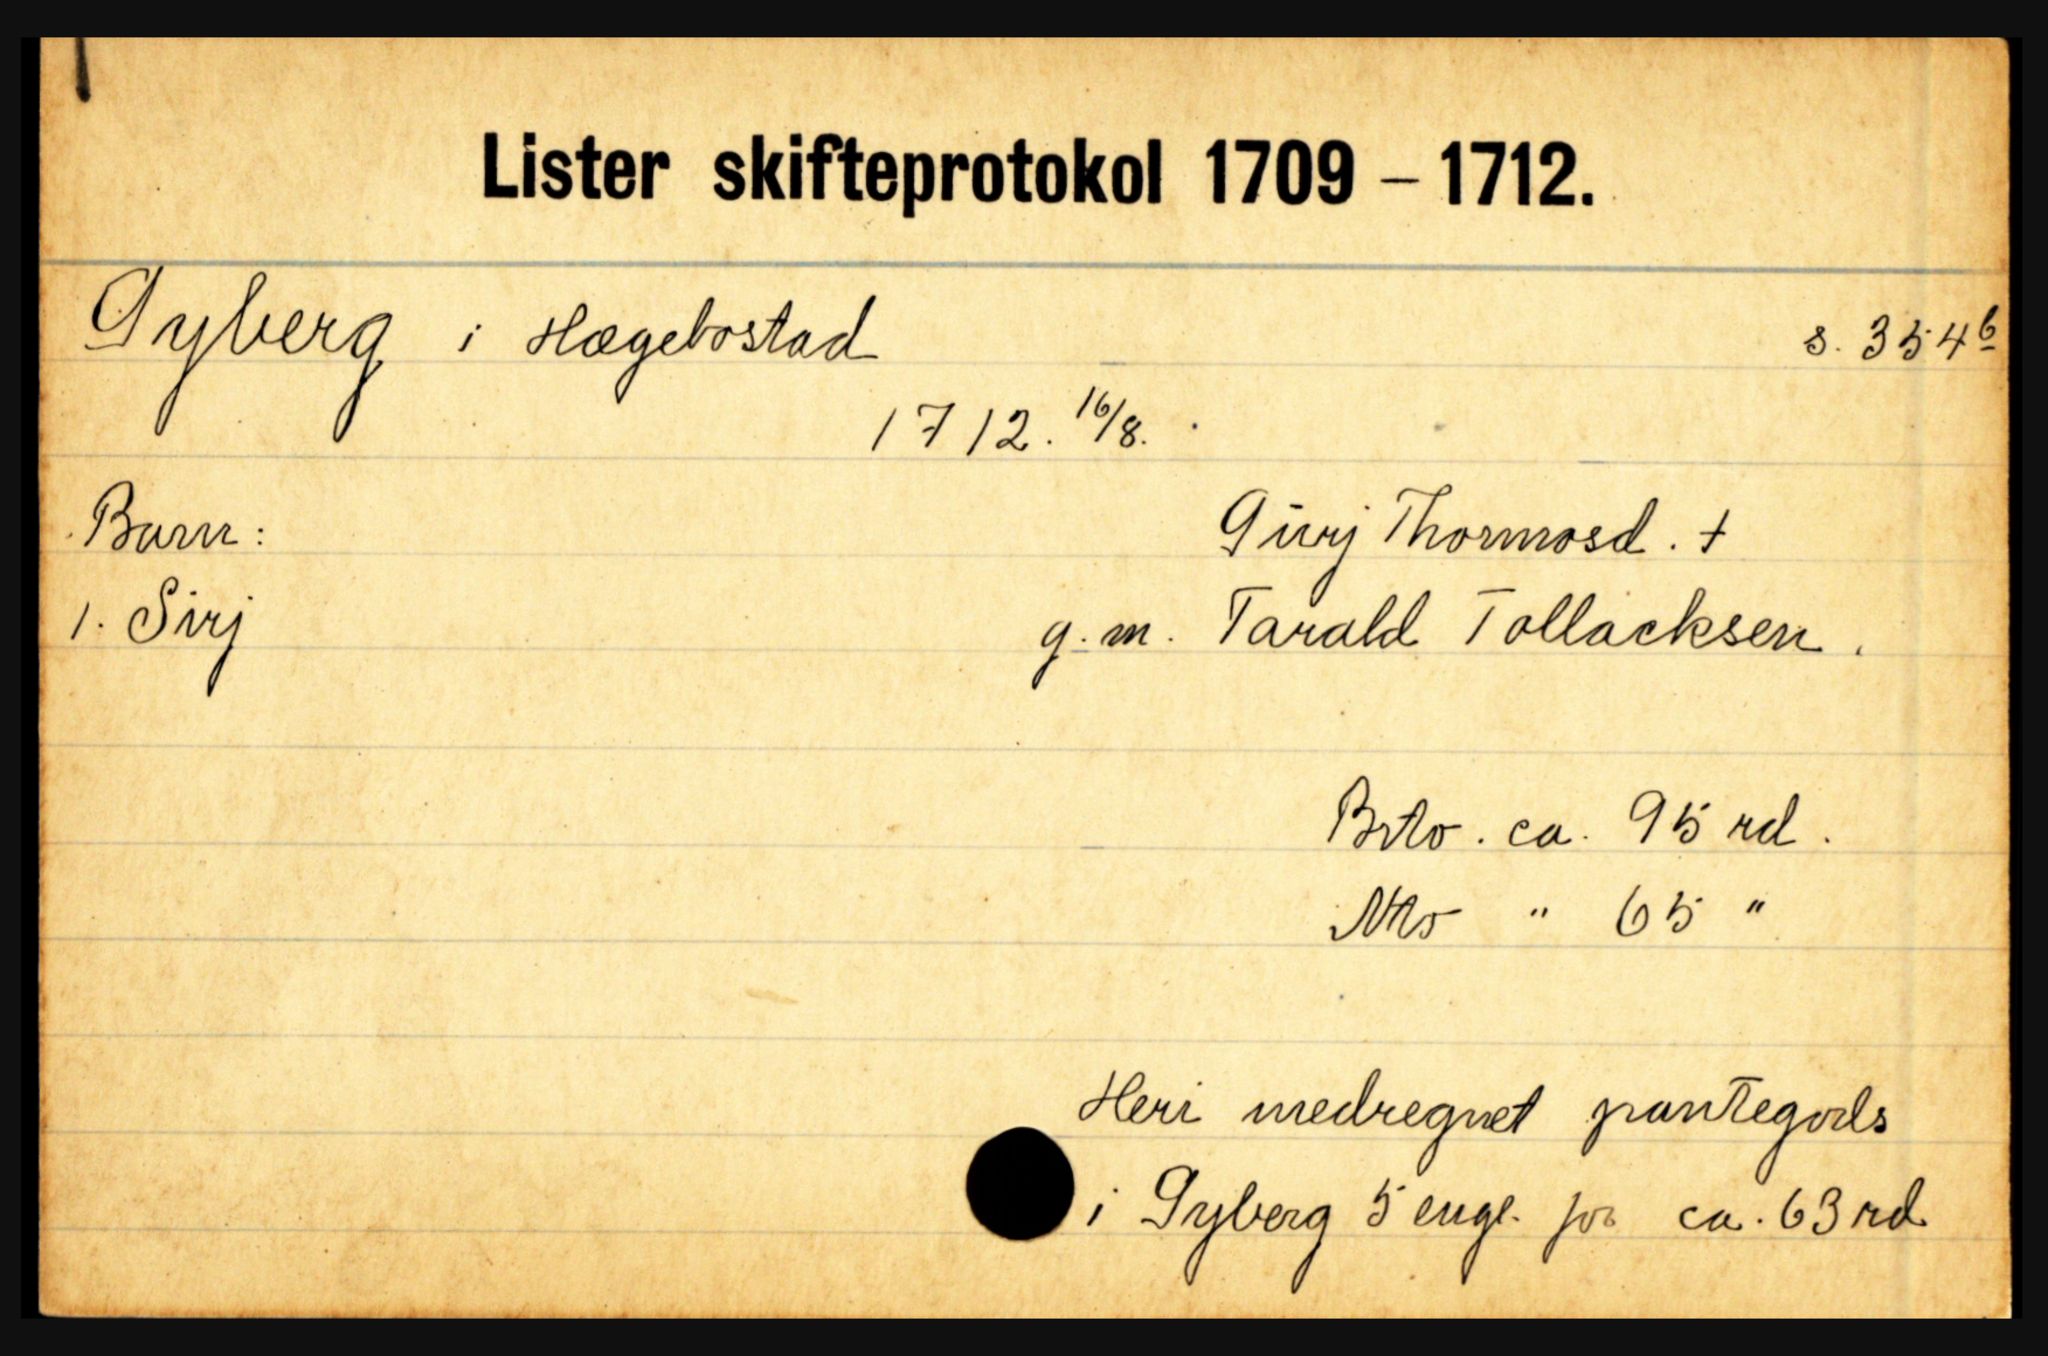 Lister skifteprotokol 1709 – 1712.
Gyberg i Hægebostad s. 354b
1712. 16/8.
Barn: Gurj Thormosd. †
1. Sirj g. m. Tarald Tollacksen.
Brto. ca. 95 rd.
Nto " 65 "
Heri medregnet pantegods
i Gyberg 5 engl. for ca. 63 rd